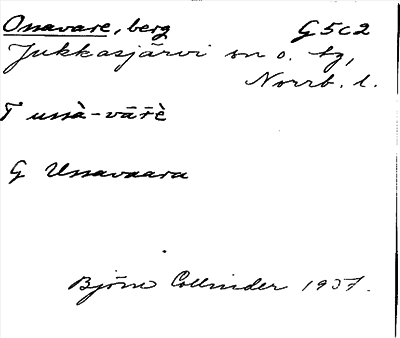 Ossavare, berg G5c2
Jukkasjärvi sn o. tg,
Norrb. l.
T ussà-vār̄è
G Ussavaara
Björn Collinder 1937.